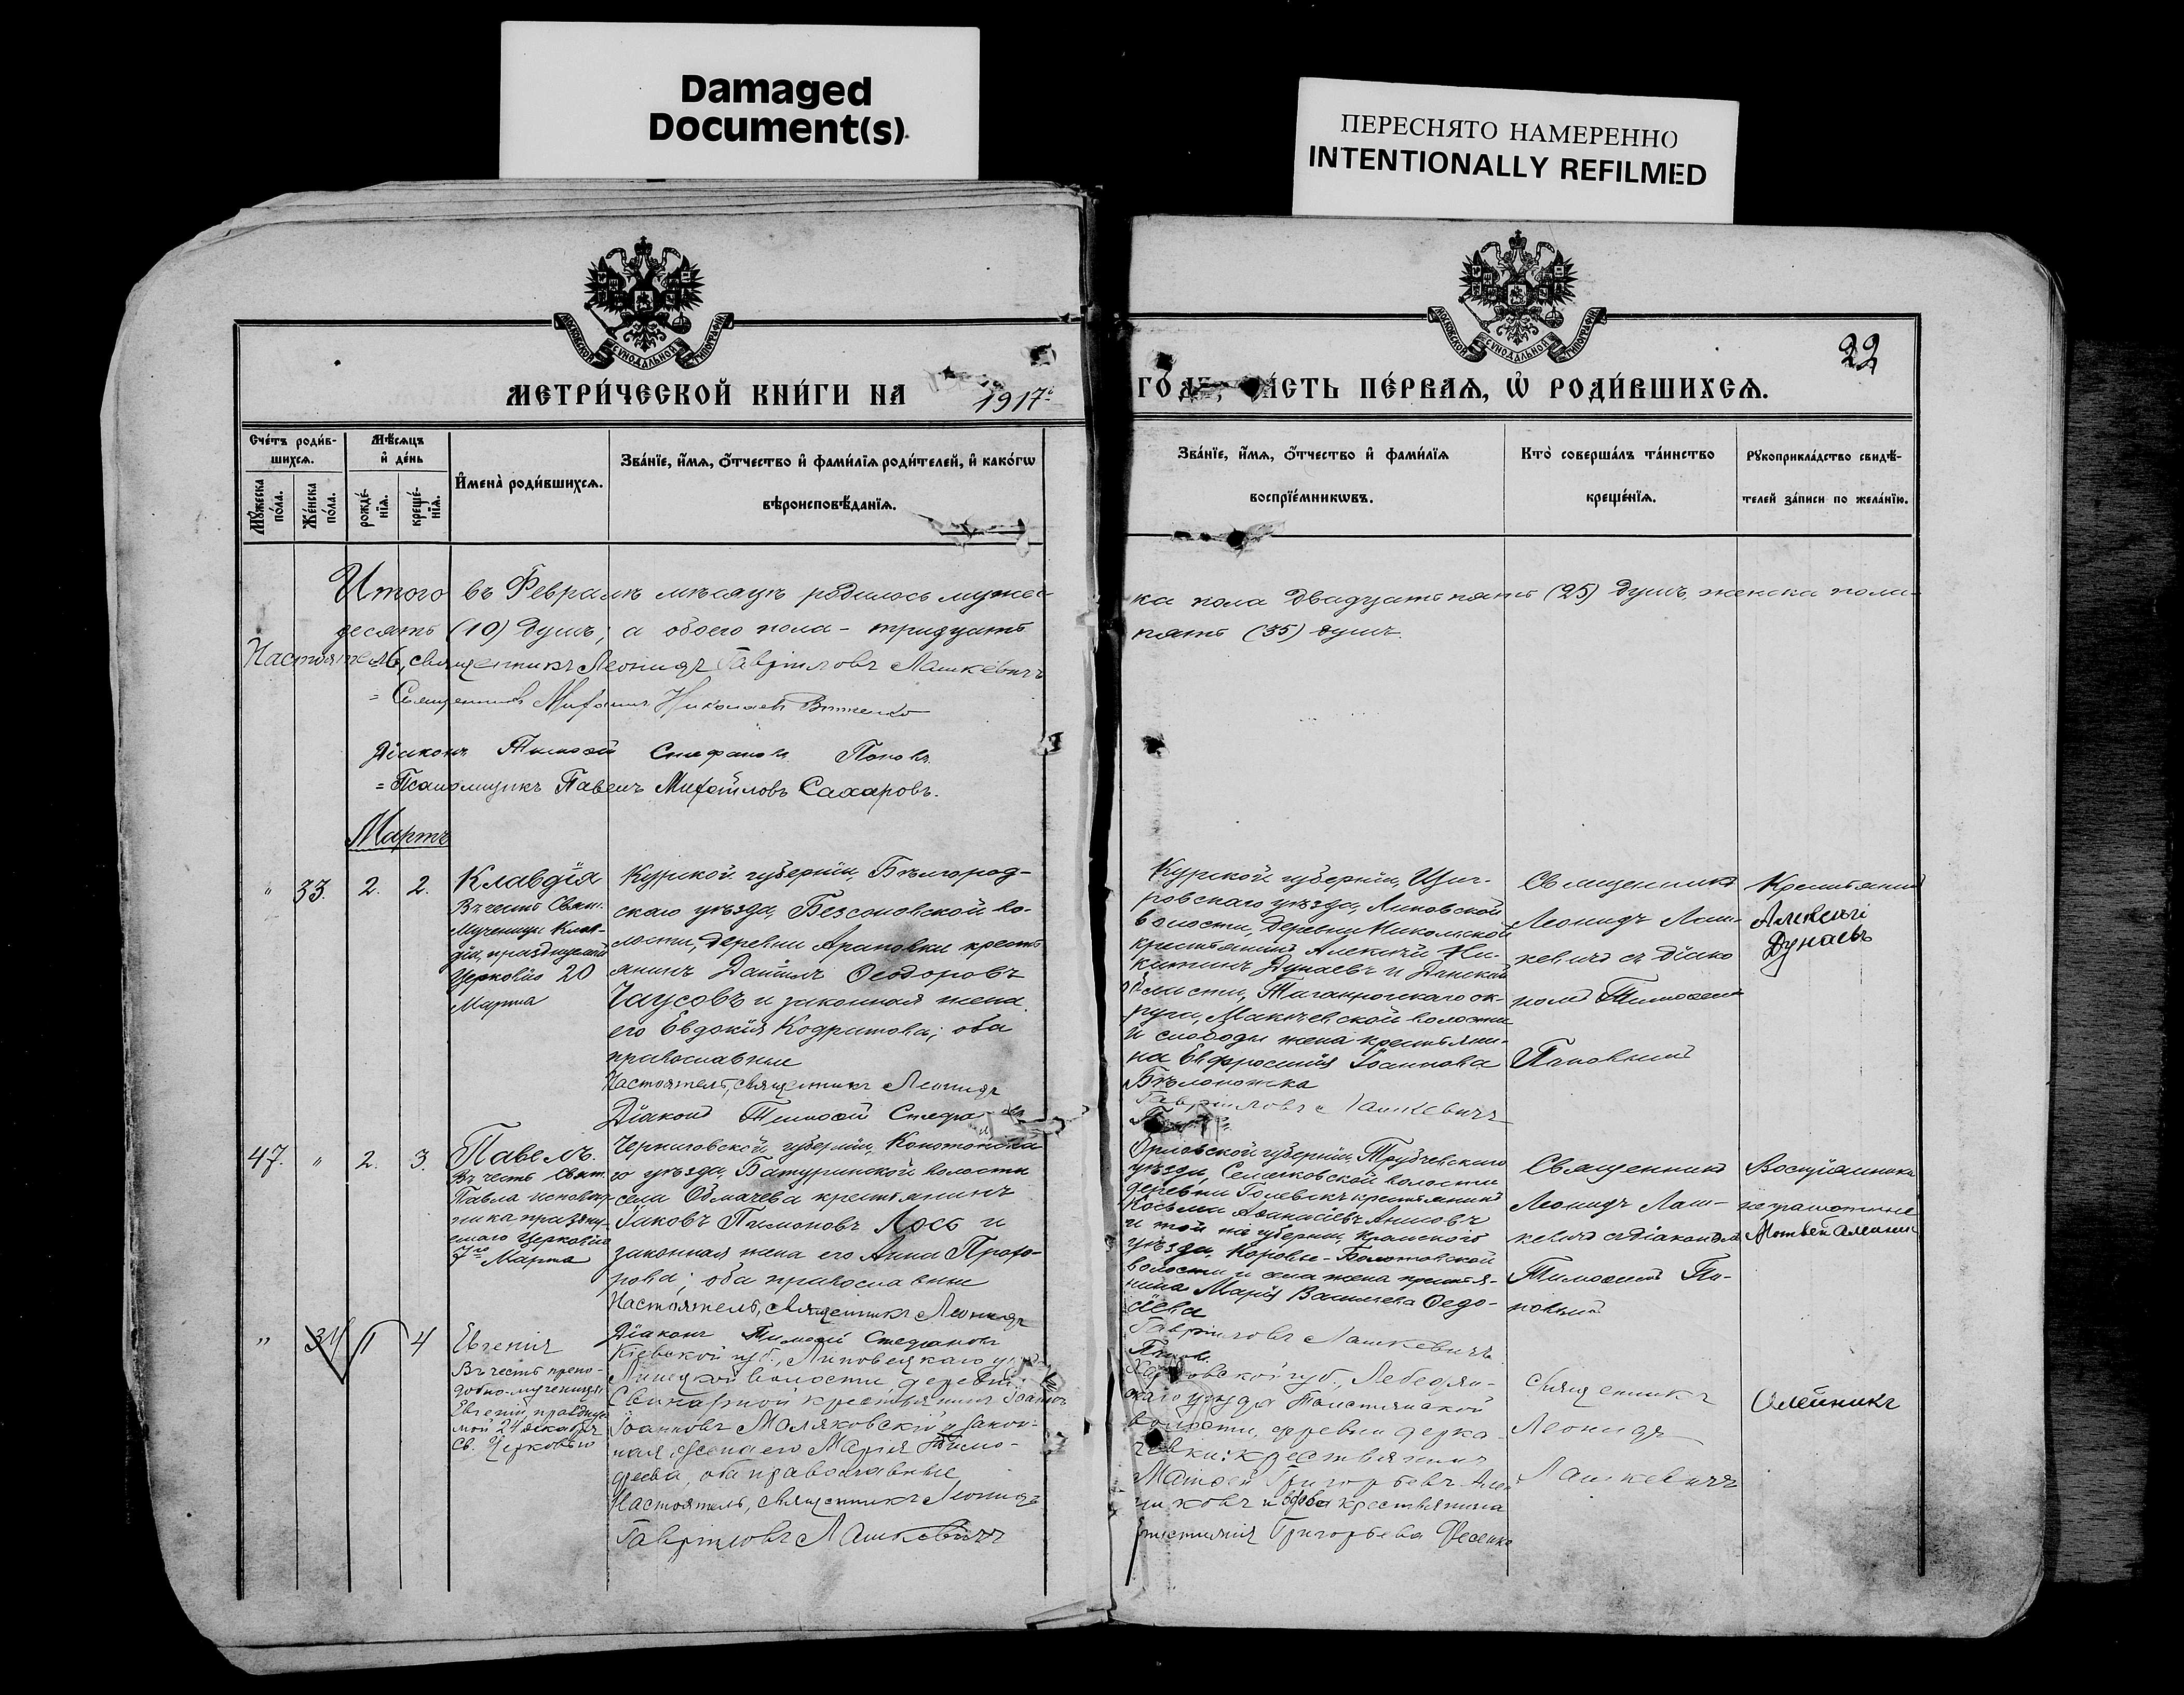 Damaged
Document(s)
ПЕРЕСНЯТО НАМЕРЕННО
INTENTIONALLY REFILMED
МОСКОВСКОЙ СѴНОДАЛЬНОЙ ТИПОГРАФІИ
МОСКОВСКОЙ СѴНОДАЛЬНОЙ ТИПОГРАФІИ
22
МЕТРИ́ЧЕСКОЙ КНИ́ГИ НА 1917
ЧА́СТЬ ПЕ́РВАЯ, Ѡ РОДИ́ВШИХСЯ.
Сче́тъ роди́в-
шихся.
Му́жеска по́ла.
Же́нска по́ла.
Мѣ́сяцъ и де́нь
рожде́-
нїя.
креще́-
нїя.
Имена̀ роди́вшихся.
Зва́нїе, и́мя, о́тчество и фами́лїя роди́телей, и како́гѡ
вѣроисповѣ́данїя.
Зва́нїе, и́мя, о́тчество и фами́лїя
воспрїе́мникѡвъ.
Кто̀ соверша́лъ та́инство
креще́нїя.
Рꙋкоприкла́дство свидѣ́-
телей за́писи по жела́нїю.
Итого въ Февралѣ мѣсяцѣ родилось мужес-
ка пола двадцать пять (25) душъ, женска пола-
десять (10) душъ; а обоего пола - тридцать
пять (35) душъ.
Настоятель, священникъ Леонидъ Гавріиловъ Лашкевичъ
= Священникъ Михаилъ Николаевъ
Діаконъ Тимоѳей Стефановъ Поповъ
= Псаломщикъ Павелъ Михайловъ Сахаровъ.
Мартъ
" 33. 2. 2.
Клавдія
Въ честь Свят.
Мученицы Клав-
діи, празднуемой
Церковію 20
Марта
Курской губерніи, Бѣлгород-
скаго уѣзда, Безсоновской во-
лости, деревни Араповки кресть
янинъ Даніилъ Ѳеодоровъ
Чаусовъ и законная жена
его Евдокія Кодратова; оба
православные
Настоятель, священникъ Леонидъ
Діаконъ Тимоѳей Стефа
Курской губерніи, Щиг-
ровскаго уѣзда, Липовской
волости, деревни Никольской
крестьянинъ Алексій Ни-
китинъ Дунаевъ и Донской
Области, Таганрогскаго ок-
руга, Макѣевской волости
и слободы жена крестьяни-
на Евфросинія Іоаннова
Бѣлоножка
Гавріиловъ Лашкевичъ
Священникъ
Леонидъ Лаш-
кевичъ съ діако
номъ Тимоѳеемъ
Поповымъ
Крестьянинъ
Алексѣй
Дунаевъ
47. " 2. 3.
Павелъ.
Въ честь Свят.
Павла исповѣд-
ника, праздну-
емаго Церковію
7го Марта
Черниговской губерніи, Конотопска
го уѣзда, Батуринской волости
села Обмачева крестьянинъ
Іаковъ Пимоновъ Лось и
законная жена его Анна Прохо-
рова; оба православные
Настоятель, священникъ Леонидъ
Діаконъ Тимоѳей Стефановъ
Орловской губерніи, Трубчевскаго
уѣзда, Селецковской волости
деревни крестьянинъ
Косьма Аѳанасіевъ
и той же губерніи, Кромскаго
уѣзда, Коровье-Болотовской
волости и села жена крестья-
нина Марія Васильева Ѳедо-
Гавріиловъ Лашкевичъ
Священникъ
Леонидъ Лаш-
кевичъ съ діакономъ
Тимоѳеемъ По-
повымъ
Воспріемники
неграмотные
" 34 4
Евгенія
Въ честь препо-
добно-мученицы
Евгеніи, праздну
мой 24 декабря
Св. Церковью
Кіевской губ., Липовецкаго
волости деревни
крестьянинъ Іоаннъ
Іоанновъ Маляковскій и закон-
ная жена его Марія Тимо-
ѳеева, оба православные
Настоятель, священникъ Леонидъ
Гавріиловъ Лашкевичъ
Харьковской губ., Лебедян-
скаго уѣзда
волости, деревни
крестьянинъ
Матѳей Григорьевъ
и вдова крестьянина
Григорьева
Священникъ
Леонидъ
Лашкевичъ
Олейникъ